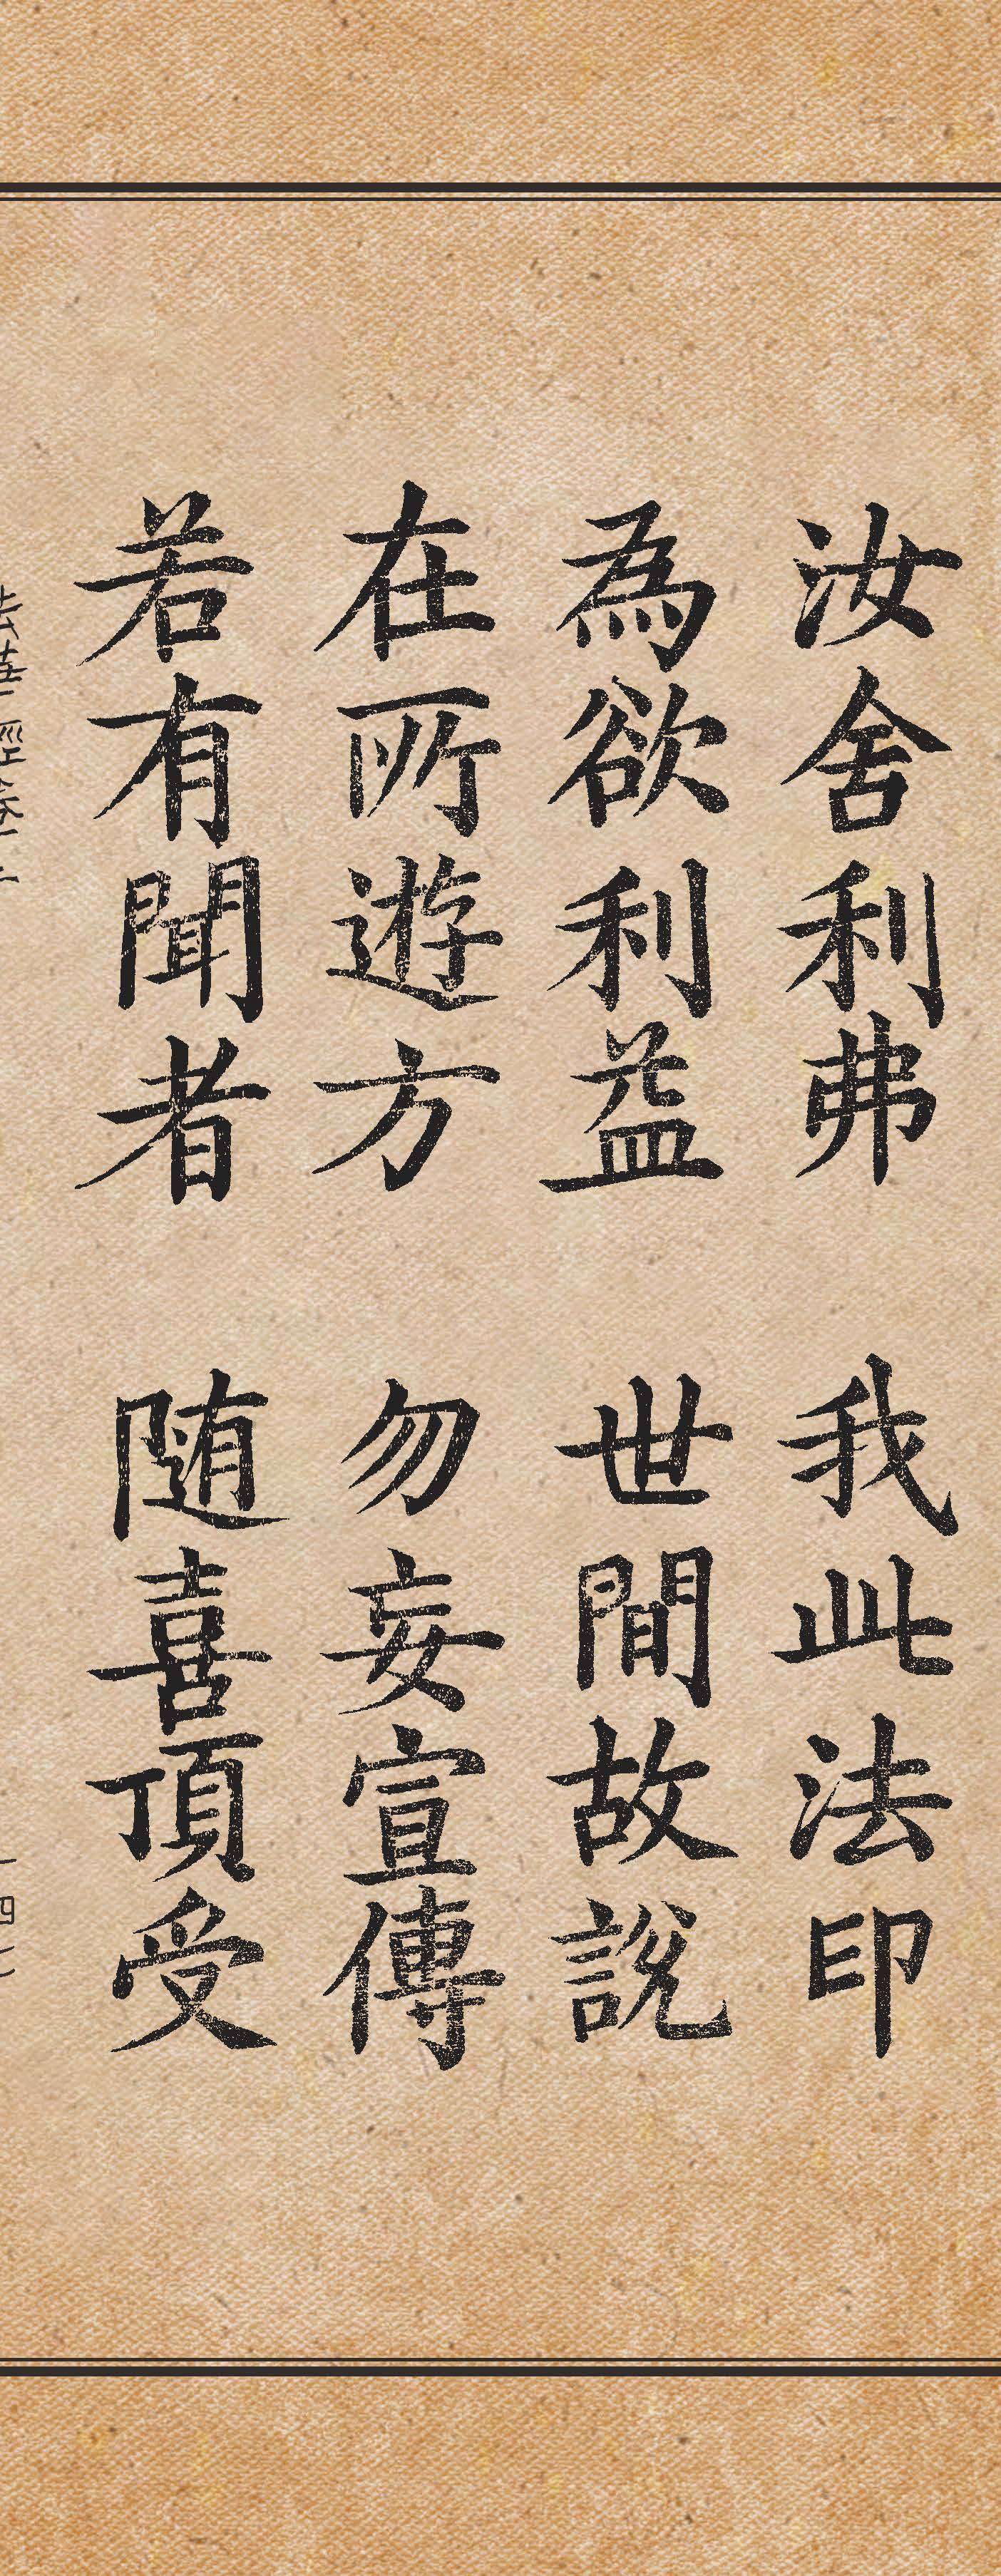 汝舍利弗 我此法印
為欲利益 世間故說
在所遊方 勿妄宣傳
若有聞者 随喜頂受